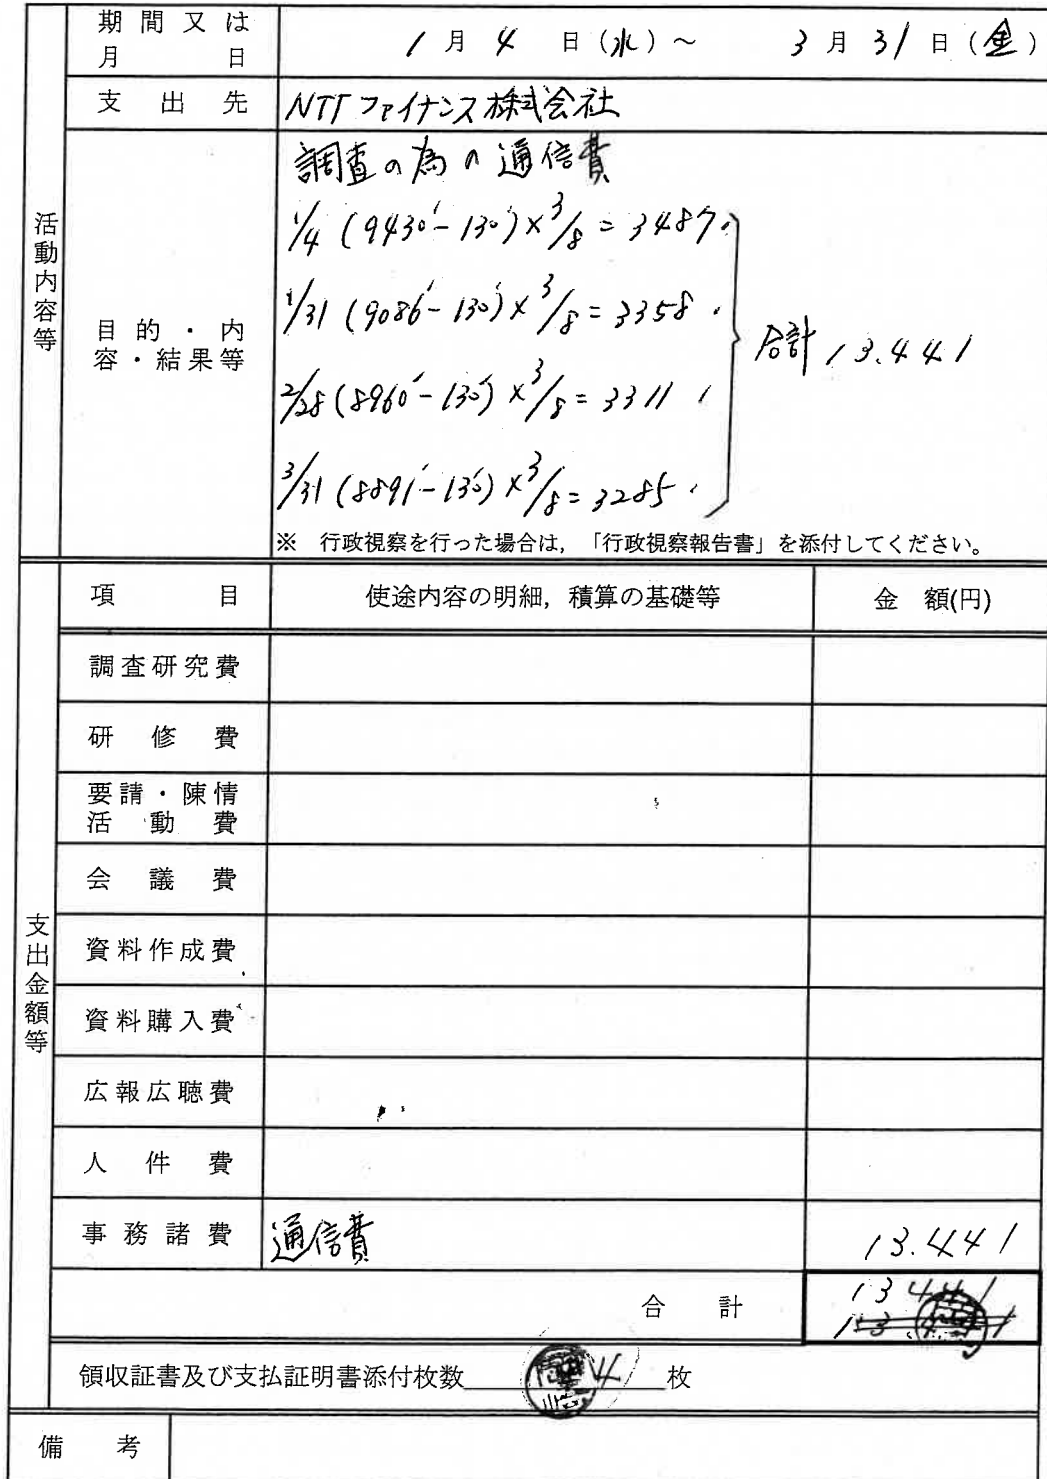 活動内容等
期間又は
月日
1月4日(水)~3月31日(金)
支出先
NTTファイナンス株式会社
目的・内
容・結果等
調査の為の通信費
1/4 (9430-130)×3/8=3487
1/31 (9086-130)×3/8=3358
2/28 (8960-130)×3/8=3311
3/31 (8891-130)×3/8=3285
合計 13.441
※ 行政視察を行った場合は,「行政視察報告書」を添付してください。
支出金額等
項目 使途内容の明細,積算の基礎等 金額(円)
調査研究費
研修費
要請・陳情
活動費
会議費
資料作成費
資料購入費
広報広聴費
人件費
事務諸費 通信費 13.441
合計 13441
13.441
領収証書及び支払証明書添付枚数 4 枚
備考